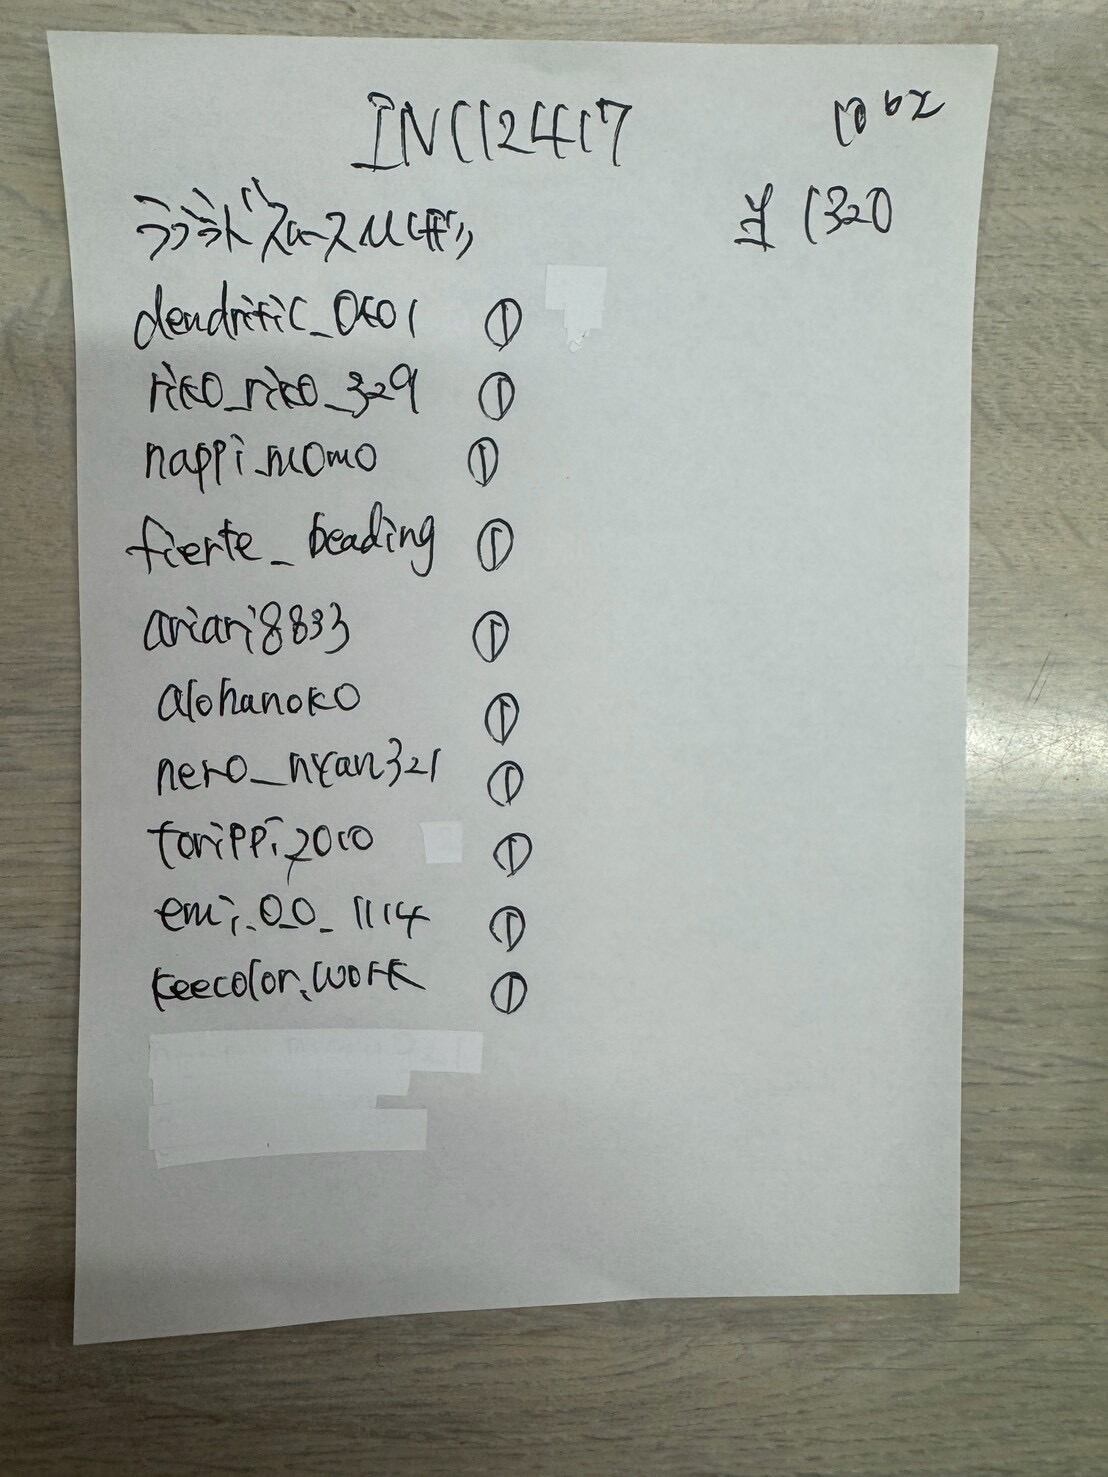 INC112417
10 bx
¥1320
dendritic_0601 ①
riko_riko_329 ①
nappi_momo ①
fierte_beading ①
ariari8833 ①
alohanoko ①
nero_nyan321 ①
torippi2010 ①
emi.0.0_1114 ①
keecolor.work ①